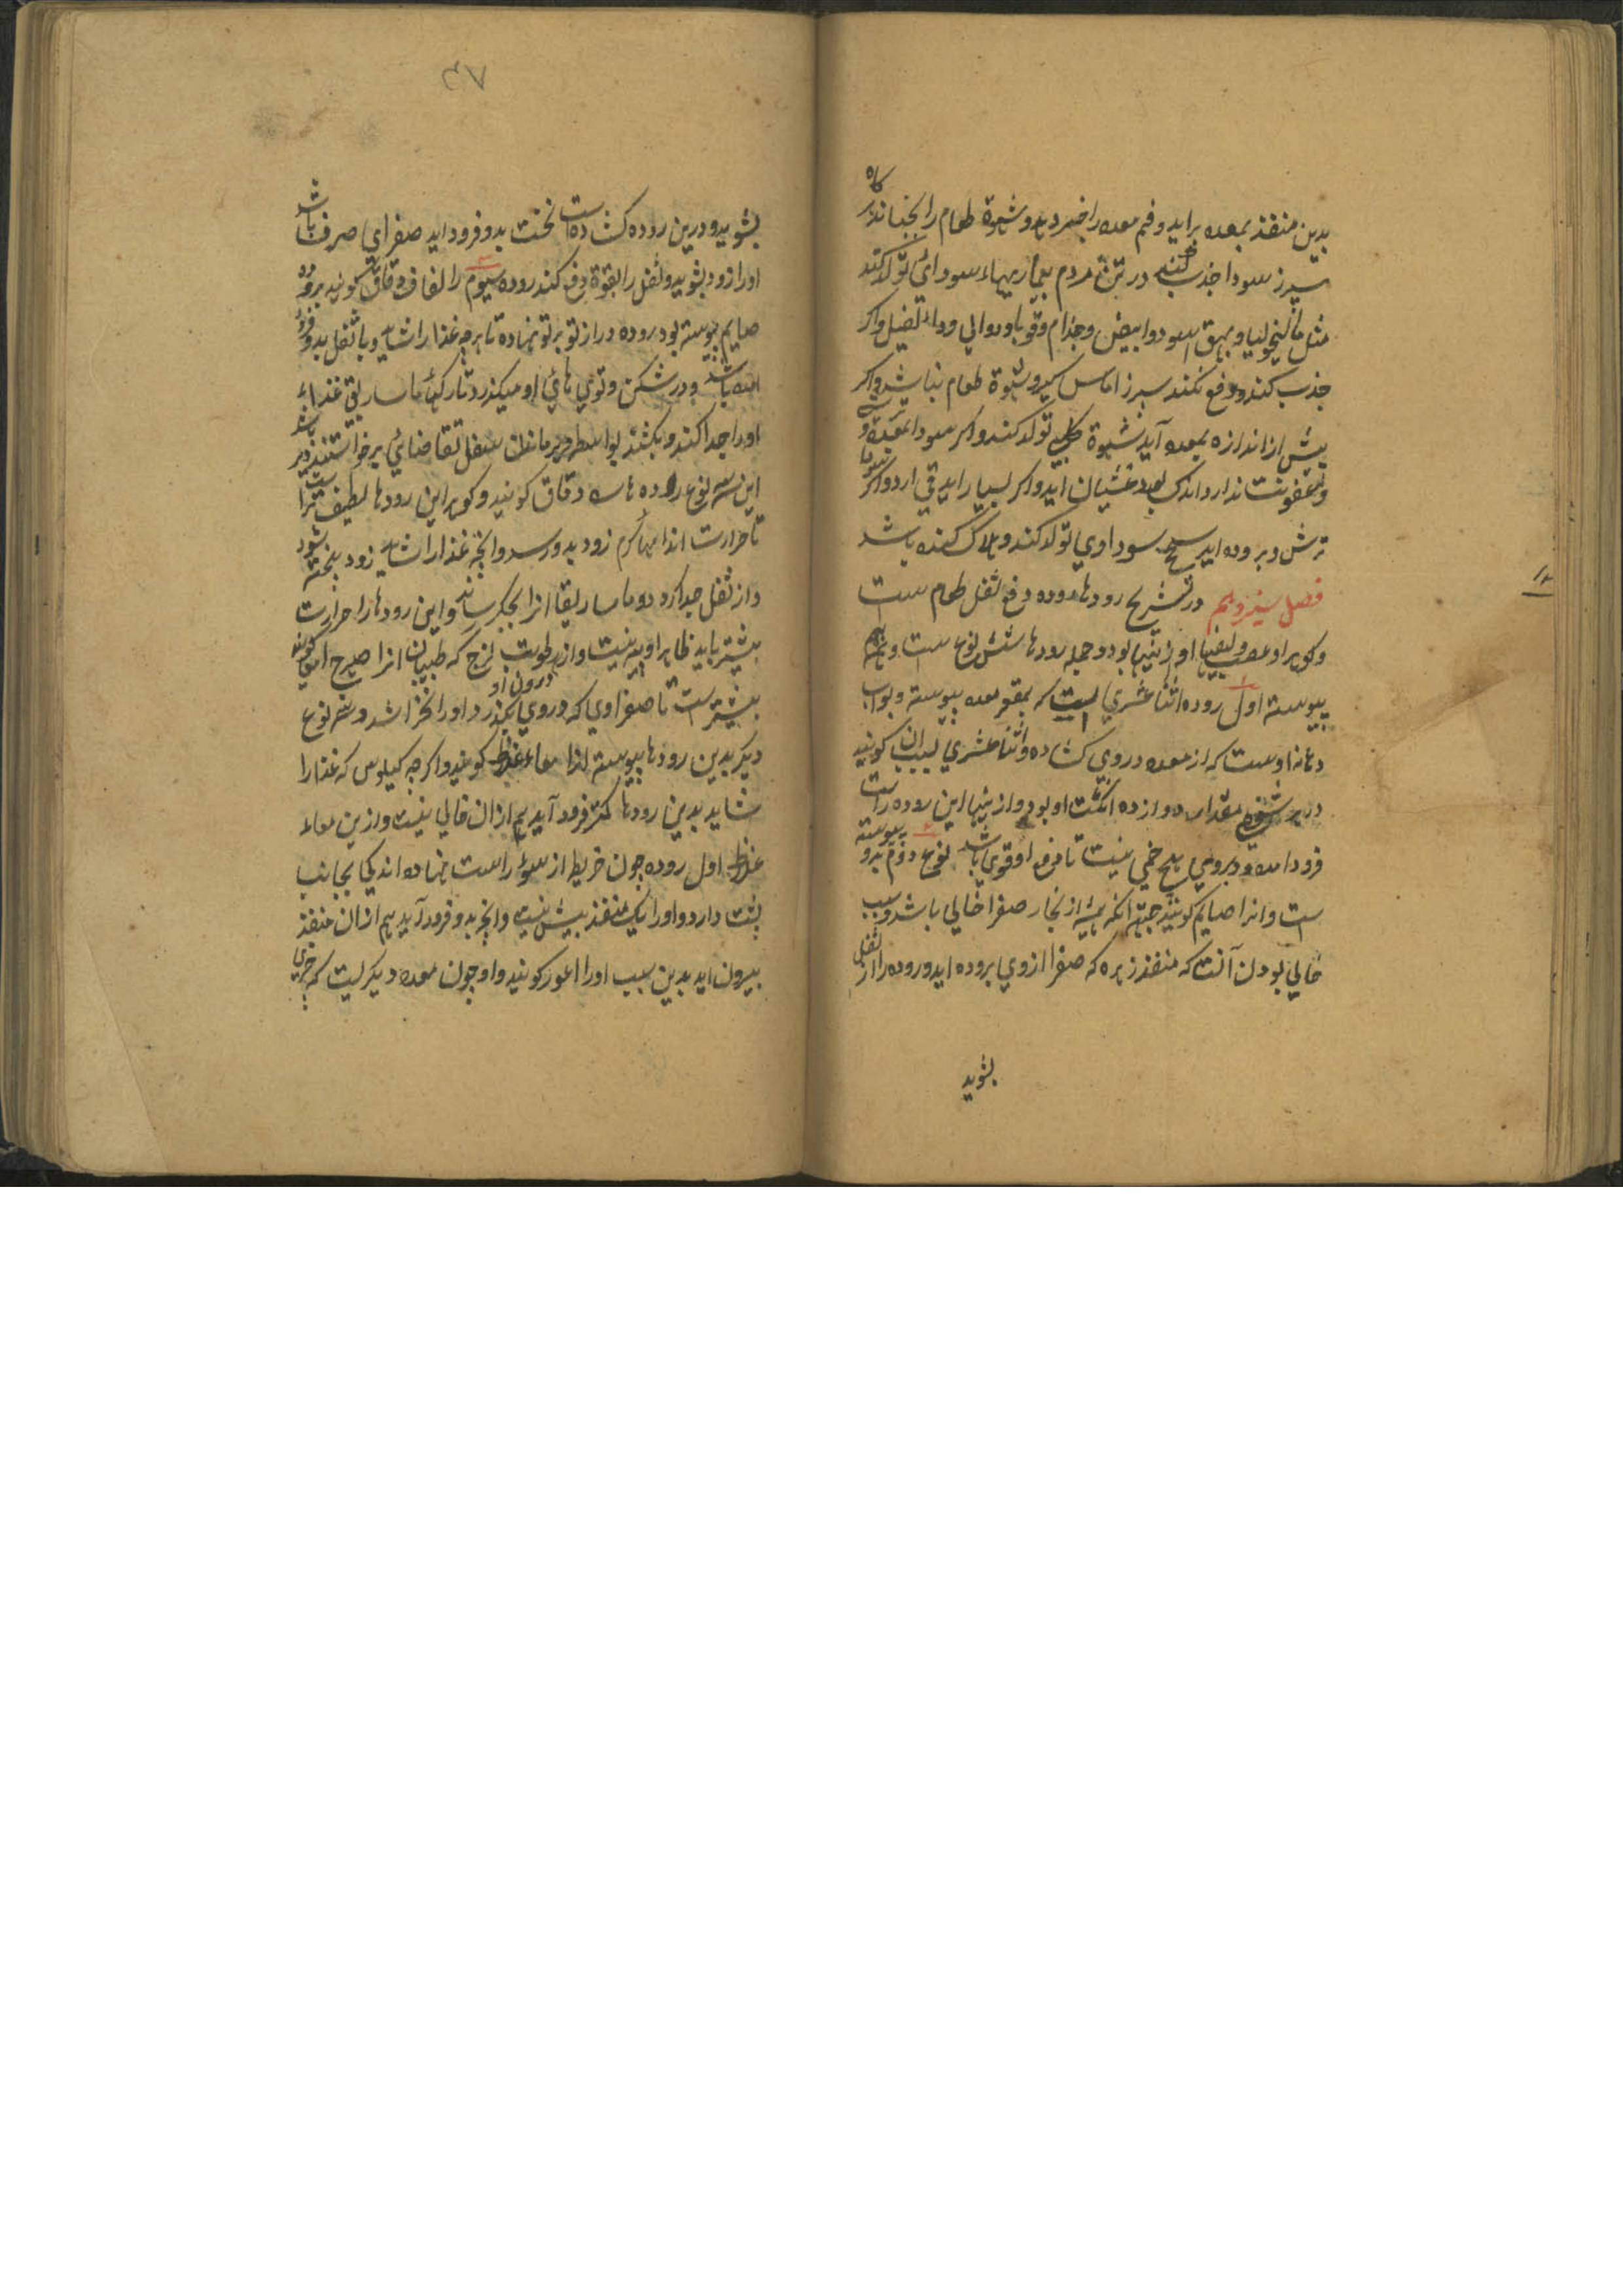 بدین منفذ بمعده براید و فم معده را خبر دهد و شهوة طعام را بجنباند و کاه
سپرز سودا جذب نکند در تن مردم بیماریهاء سودائی تولد کند
مثل مالنخولیا و بهق اسود و ابیض و جذام و قوبا و دوالی و داء الفیل و اکر
جذب کند و دفع نکند سپرز اماس کیرد و شهوة طعام نباشد و اکر
بیش از اندازه بمعده آید شهوة کلبی تولد کند و اکر سودا بمعده
و عفونت ندارد اندکی بعد غشیان آید و اکر بسیار اید قی ارد و اکر
ترش و بروده اید سحج سوداوی تولد کند و هلاک کننده باشد
فصل سیزدهم در تشریح رودها روده دفع ثفل طعام ست
و کوهر او عصب و لیفها او از تنیها بود و جمله رودها شش نوع ست و بهم
پیوسته اول روده اثنا عشری است که بمقعر معده پیوسته و بواب
دهانه اوست که از معده در وی کشاده و اثنا عشری بسبب ان کویند
در هر شخصی مقدار دوازده انکشت او بود و از تنیها این روده راست
فرود امده و دروی هیچ خمی نیست تا دفع او قوی باشد نوع دوم بدو پیوسته
ست و انرا صایم کویند جهة انکه همیشه از بخار صفرا خالی باشد و سبب
خالی بودن آنست که منفذ زهره که صفرا ازوی بروده اید و روده را از ثفل
بشوید
۳۸
بشوید و درین روده کشاده است نخست بدو فرود اید صفرای صرف باشد
او را زود بشوید و ثفل را بقوة دفع کند روده سیوم را لفاف و دقاق کویند بروده
صایم پیوسته بود روده دراز تو بر تو نهاده تا هرچه غذا را شاید و با ثفل بدو فرود
امده باشد و در شکن و توی های او میکذرد تا رکهاء ماساریقی غذاء
او را جدا کند و بکشد بواسطه دیر ماندن ثفل تقاضائی برخواستن دیر باشد
این سه نوع روده هاست دقاق کویند و کوهر این رودها لطیف تر است
تا حرارت اندامهاء کرم زود بدو رسد و انچه غذا را شاید زود پخته شود
و از ثفل جدا کردد و ماساریقا انرا بجکر رساند و این رودها را حرارت
بیشتر باید ظاهر او پیه نیست و از رطوبت لزج که طبیبان انرا صهرج امعا کویند درون او
بیشتر ست تا صفراوی که دروی بکذرد او را نخراشد و سه نوع
دیکر بدین رودها پیوسته انرا معاء غلاظ کویند و اکرچه کیلوس که غذا را
شاید بدین رودها کمتر فرود آید هم از ان خالی نیست و ازین معاء
غلاظ اول روده چون خریطه از سوء راست نهاده اندکی بجانب
پشت دارد و او را یک منفذ بیش نیست و انچه بدو فرود آید هم از ان منفذ
بیرون اید بدین سبب او را اعور کویند و او چون معده دیکر لیست که چیزی